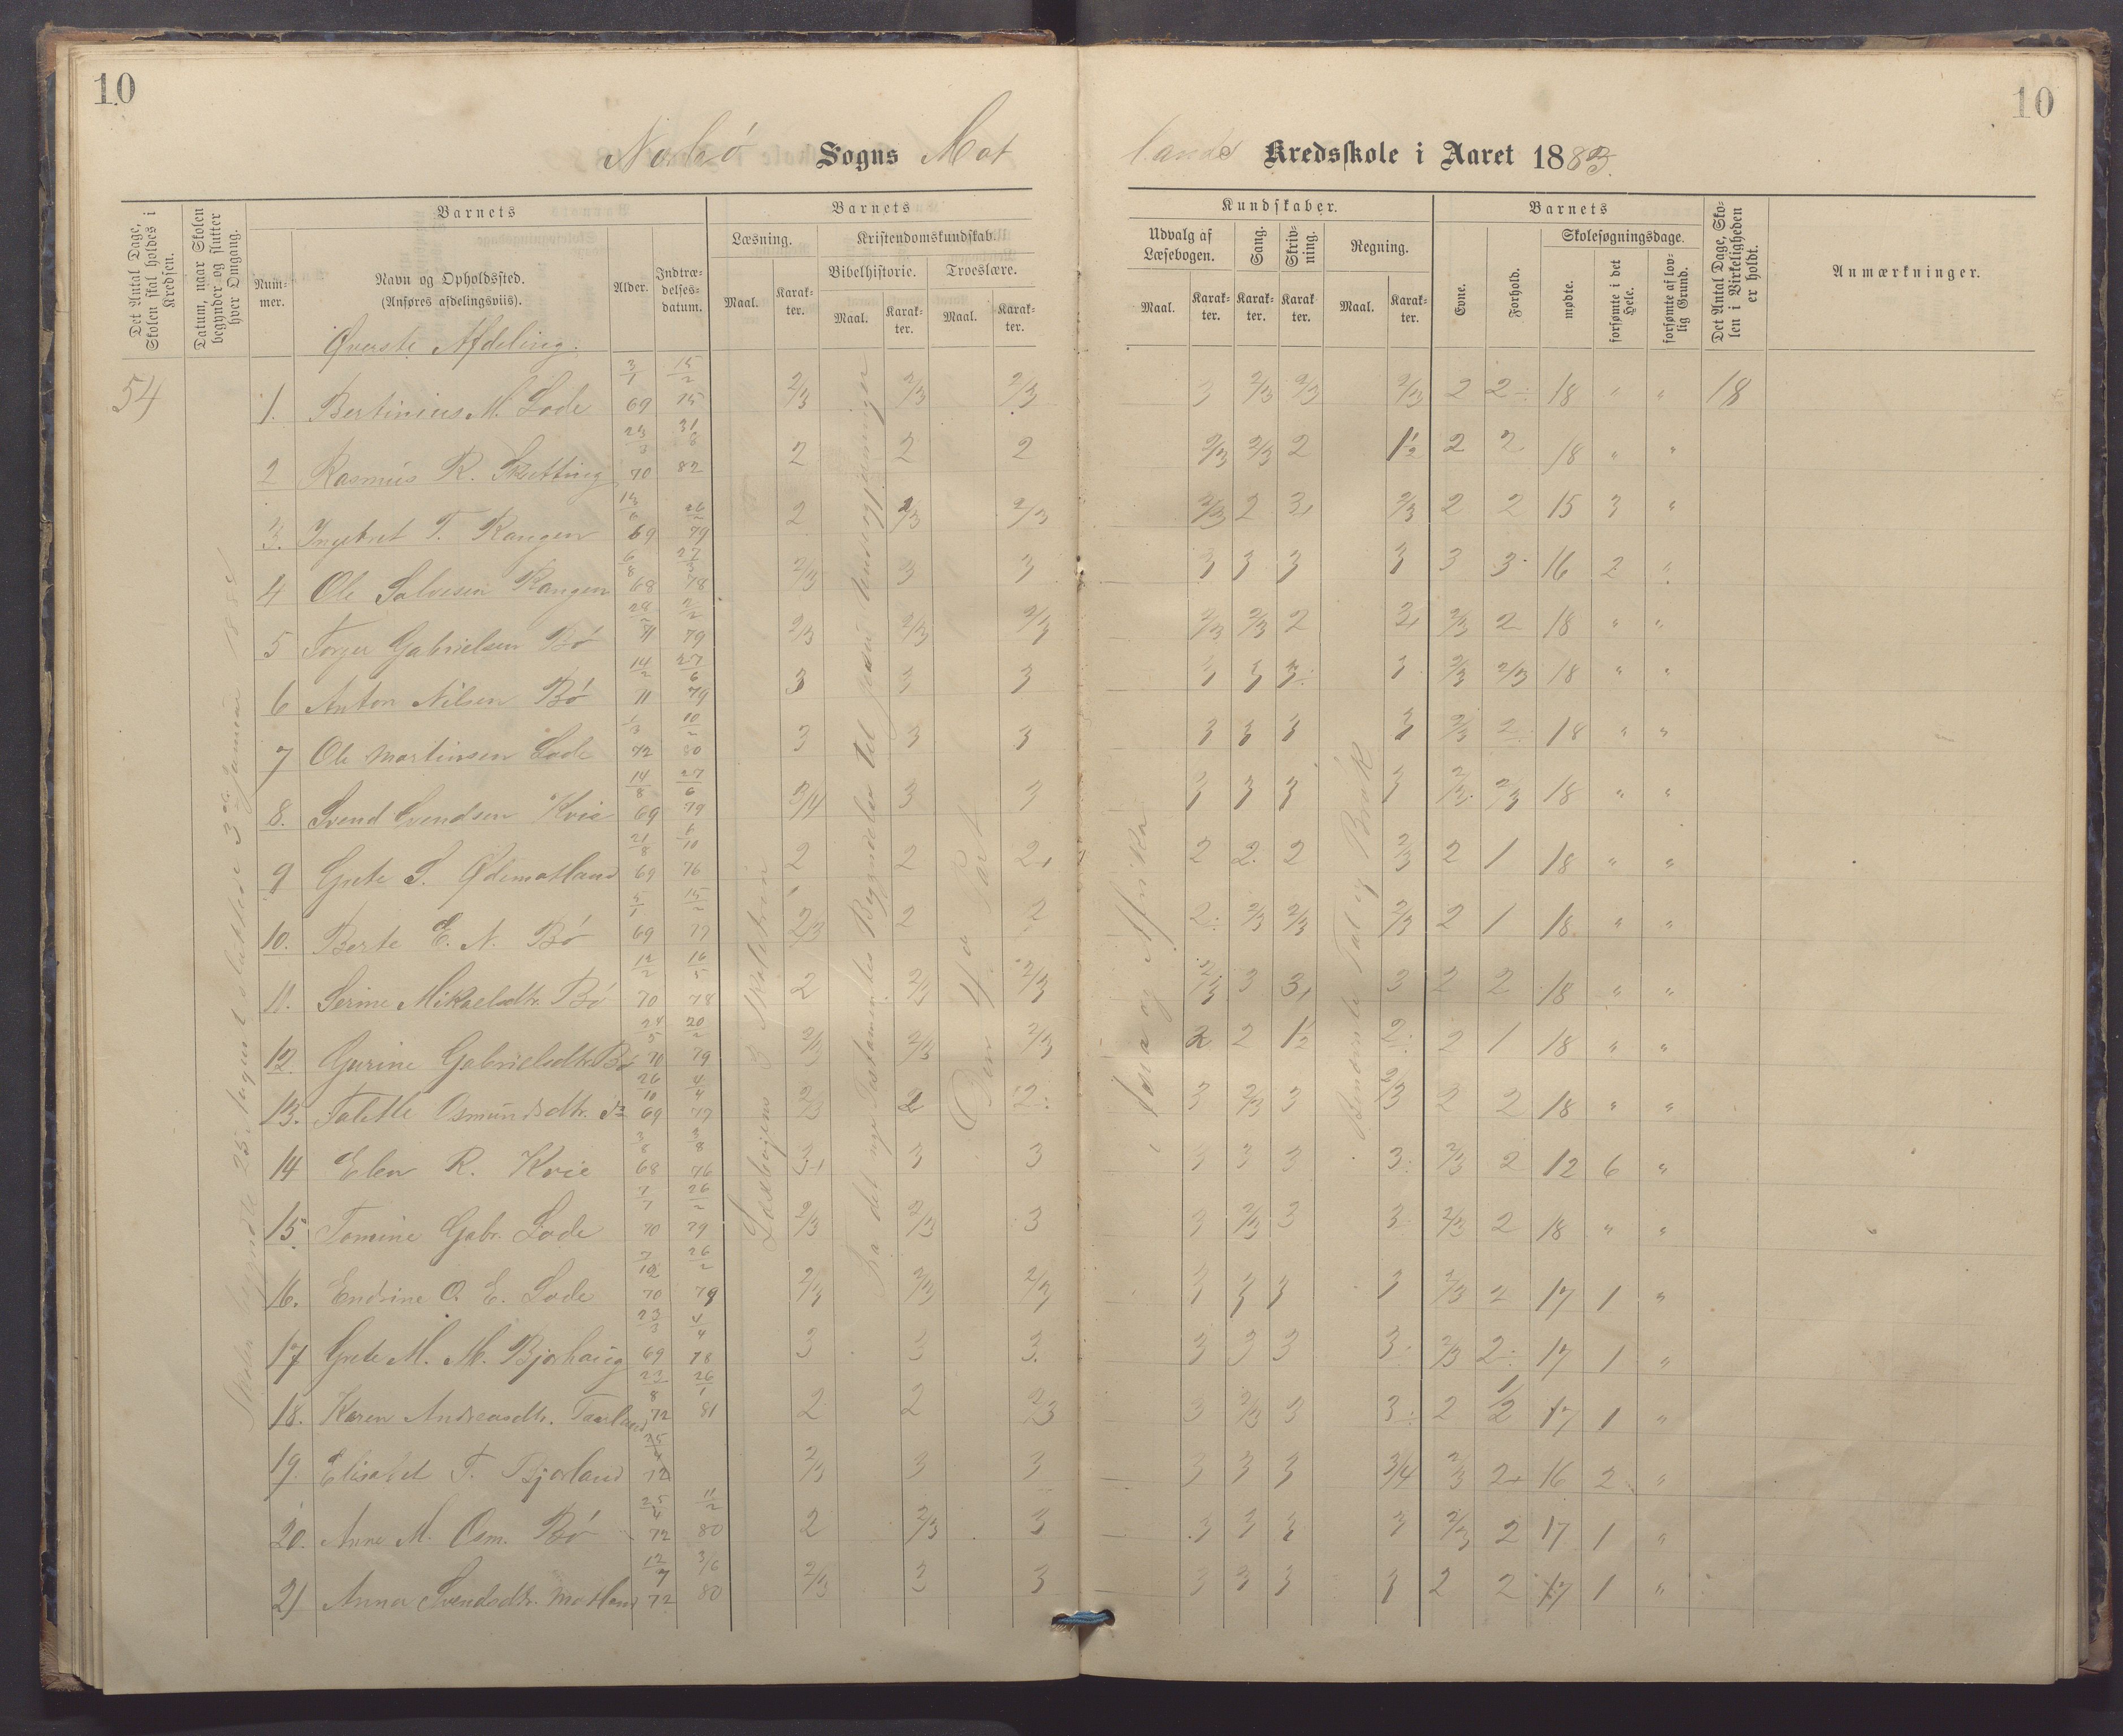 10
10
Nærbø Sogns Mat
lands Kredsskole i Aaret 1883.
Det Antal Dage, Skolen skal holdes i Kredsen.
Datum, naar Skolen begynder og slutter hver Omgang.
Barnets
Nummer.
Navn og Opholdssted.
(Anføres afdelingsviis).
Alder.
Indtrædelsesdatum.
Barnets
Læsning.
Maal.
Karakter.
Kristendomskundskab.
Bibelhistorie.
Maal.
Karakter.
Troeslære.
Maal.
Karakter.
Kundskaber.
Udvalg af Læsebogen.
Maal.
Karakter.
Sang.
Karakter.
Skrivning.
Karakter.
Regning.
Maal.
Karakter.
Barnets
Evne.
Forhold.
Skolesøgningsdage.
mødte.
forsømte i det Hele.
forsømte af lovlig Grund.
Det Antal Dage, Skolen i Virkeligheden er holdt.
Anmærkninger.
Øverste Afdeling.
54
1. Bertinius M. Lode 3/1 69 15/2 75 2/3 2/3 2/3 3 2/3 2/3 2/3 2 2 18 " " 18
2 Rasmus R. Skretting 70 82 2 2 2 2/3 2/3 2 1½ 2 2 18 " "
3. Ingebret T. Kangen 69 79 2 2/3 2/3 2/3 2 3 2/3 2 2 15 3 "
4 Ole Salvesen Kangen 6/8 68 78 2/3 3 3 3 3 3 3 3 3 16 2 "
5 Torger Gabrielsen Bø 71 79 2/3 2/3 2/3 2/3 2/3 2 2 2/3 2 18 " "
6 Anton Nilsen Bø 14/2 71 27/6 79 3 3 3 3 3 3 3 2/3 2/3 18 " "
7 Ole Martinsen Lode 1/3 72 10/2 80 3 3 3 3 3 3 3 2/3 2 18 " "
8. Svend Svendsen Kvie 14/8 69 27/6 79 3/4 3 3 3 3 3 3 2/3 2/3 18 " "
9 Grete S. Ødemotland 21/8 69 6/10 76 2 2 2 2 2 2 2/3 2 1 18 " "
10. Berte E. N. Bø 5/1 69 15/2 77 2/3 2 2 2 2/3 2/3 2/3 2 1 18 " "
11. Serine Mikaelsdtr. Bø 12/2 70 16/5 78 2 2/3 2/3 2/3 3 3 3 2 2 18 " "
12. Gurine Gabrielsdtr. Bø 24/5 70 20/2 79 2/3 2/3 2/3 2 2 1½ 2 2 1 18 " "
13. Talette Osmundsdtr. 26/10 69 4/4 77 2/3 2 2 3 2/3 3 2/3 2 2 18 " "
14 Elen R. Kvie 3/8 68 3/8 76 3 3 3 3 3 3 3 2/3 2 12 6 "
15. Tomine Gabr. Lode 7/7 70 26/2 79 2/3 2/3 3 3 2/3 3 3 2/3 2 18 " "
16. Endrine O. E. Lode 70 26/2 79 2/3 2/3 2/3 3 3 3 3 2/3 2 17 1 "
17 Grete M. M. Bjorhaug 23/3 69 4/4 78 3 3 3 3 3 3 3 2/3 2 17 1 "
18. Karen Andreasdtr. Taarland 22/8 72 26/1 81 2 2 2/3 3 2/3 3 3 2 1/2 17 1 "
19. Elisabet T. Bjorland 72 2/3 3 3 3 3 3 3/4 2/3 2 16 2 "
20. Anne M. Osm. Bø 25/4 72 11/2 80 2 2/3 3 3 3 3 3 2/3 2 17 1 "
21 Anna Svendsdtr. Motland 12/7 72 3/6 80 2/3 3 3 3 3 3 3 2 2 17 1 "
Skolen begyndte 25. August sluttede 3die Januar
Læsebogens 3 Skoletrin
Fra det nye Testamentes Begyndelse til
Den 4de Part
Asia og Afrika
Benævnte Tal og Brøk